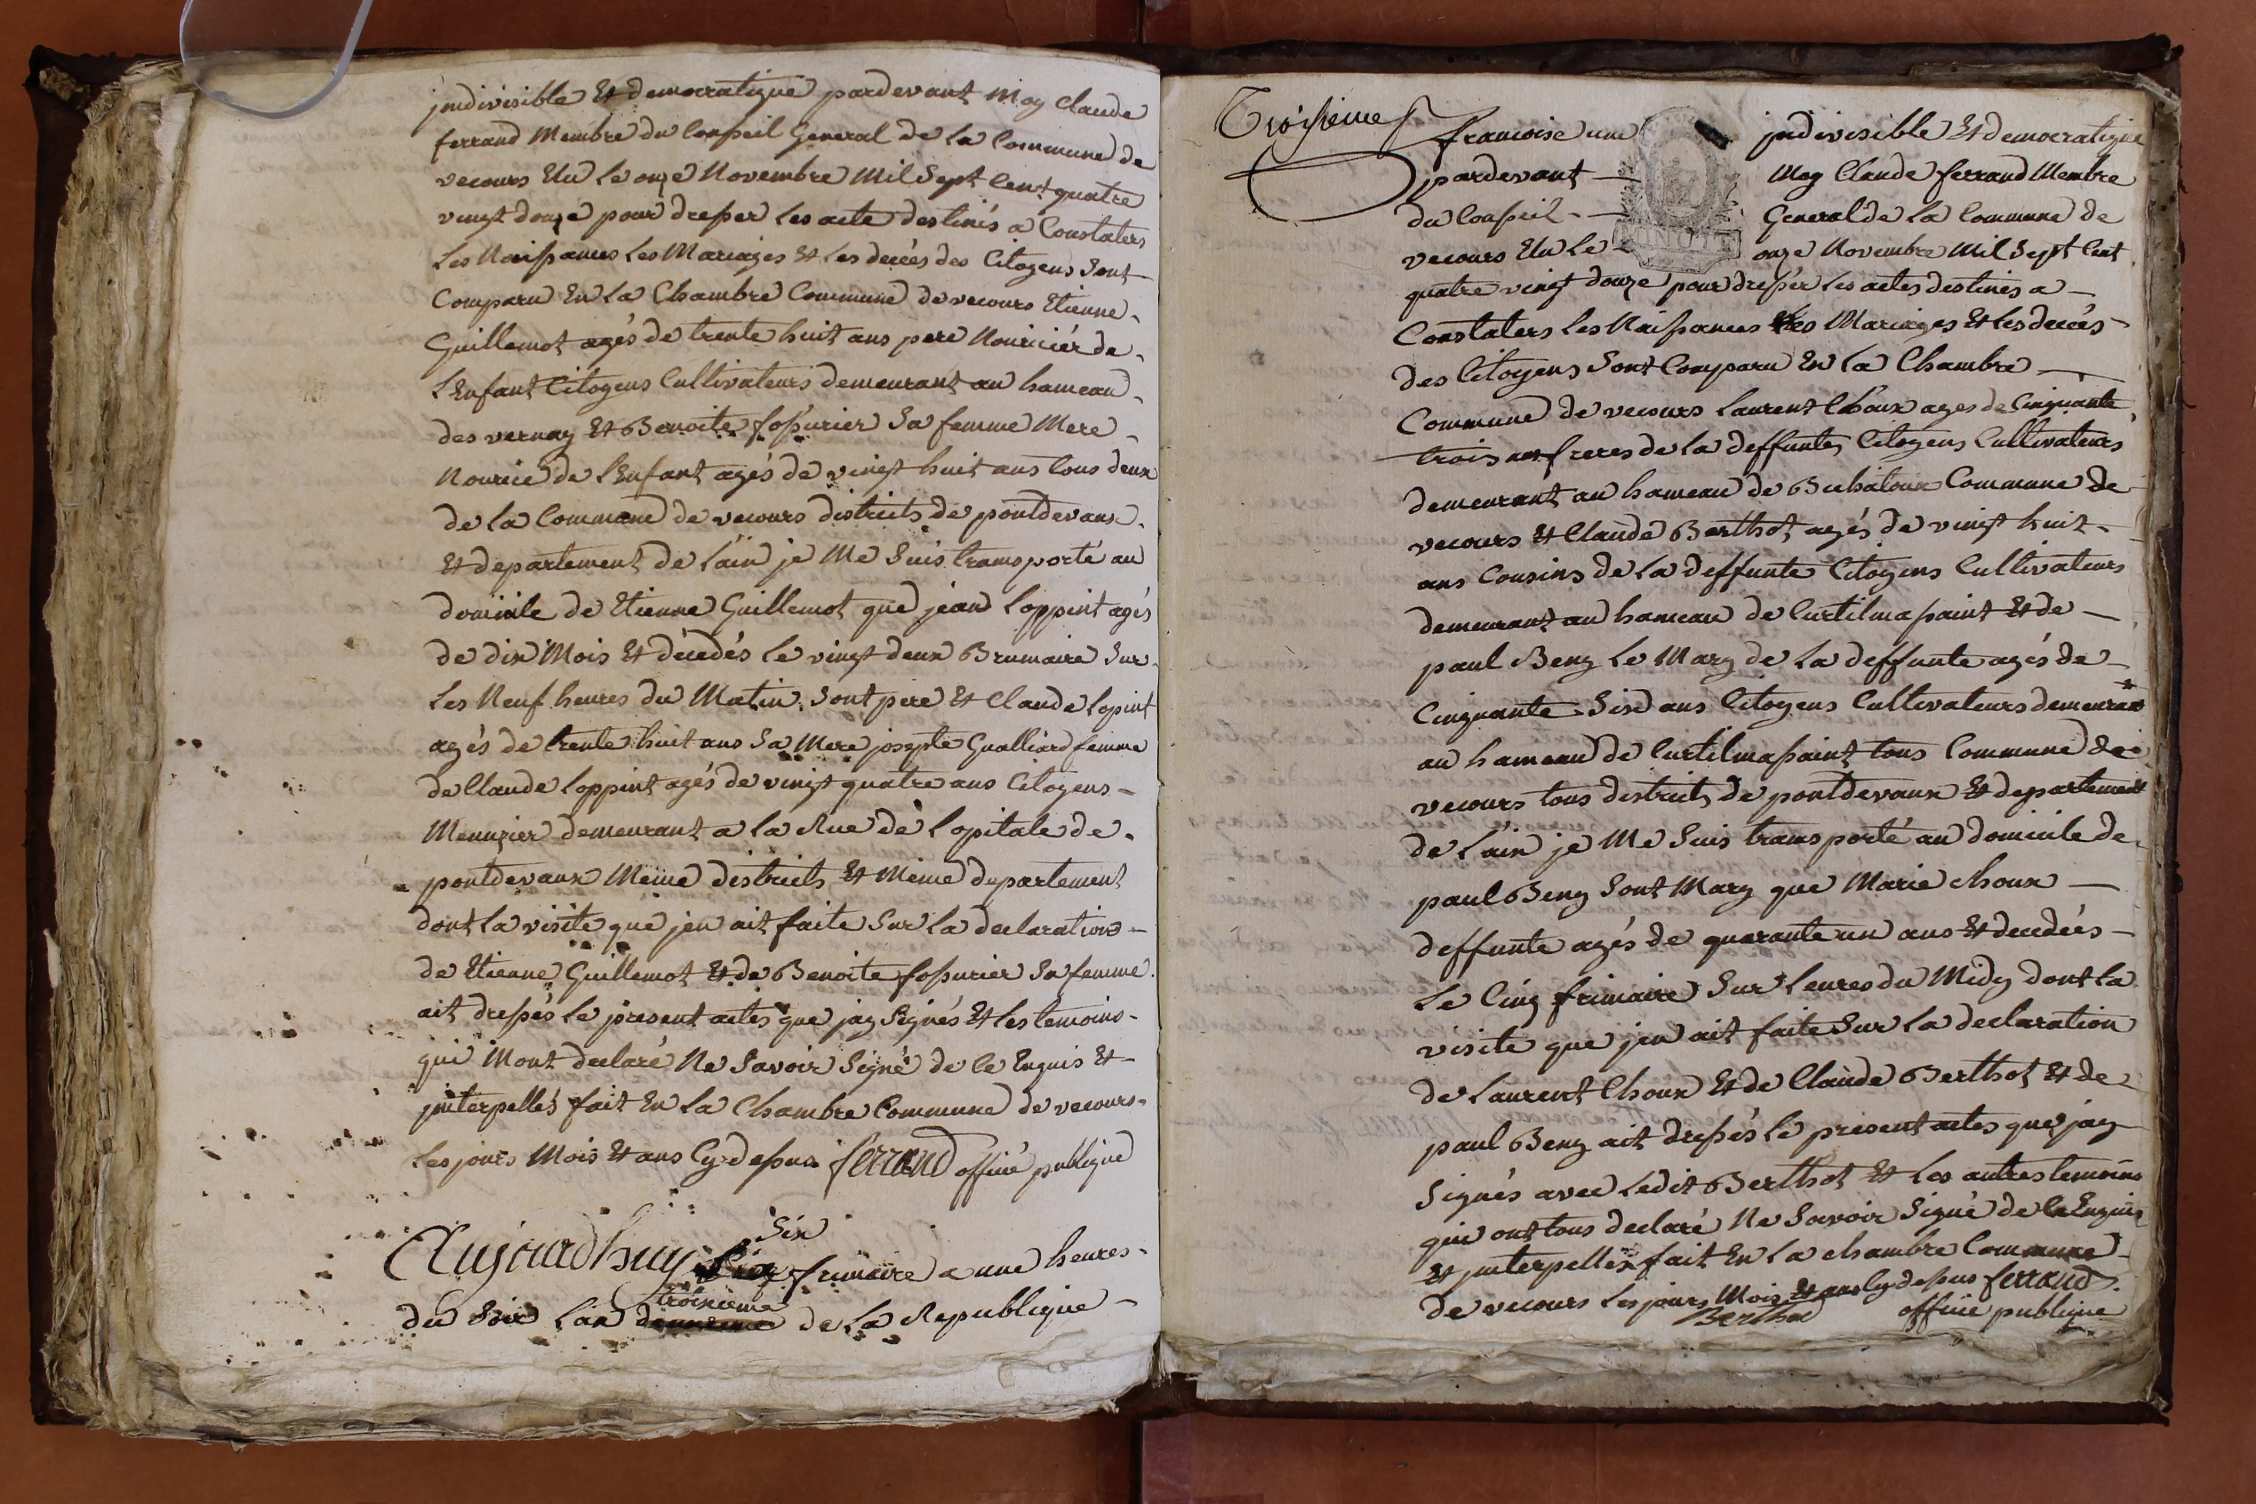 jndivisible Et democratique pardevant Moy Claude
ferrand Membre du Conseil General de La Commune de
vecours Elu Le onze Novembre Mil Sept Cent quatre
vingt douze pour dresser Les acte destinés a Constaters
Les Naissances Les Mariages Et Les decées des Citoyens Sont
Comparu En La Chambre Commune de vecours Etienne
Guillemot agés de trente huit ans pere Nouriciér de
L'Enfant Citoyens Cultivateurs demeurant au hameau
des vernay Et Benoite fossurier Sa femme Mere
Nourice de L'Enfant agés de vingt huit ans tous deux
de La Commune de vecours districts de pontdevaux
Et departement de L'ain je Me Suis transporté au
domicile de Etienne Guillemot que jean Loppint agés
de dix Mois Et décedés Le vingt deux Brumaire Sur
Les Neuf heures du Matin Sont pere Et Claude Lopint
agés de trente huit ans Sa Mere josepte Gualliard femme
de Claude Loppint agés de vingt quatre ans Citoyens
Menuzier demeurant a La Rue de Lopitale de
pontdevaux Méme districts Et Méme departement
dont La visite que jen ait faite Sur La declaration
de Etienne Guillemot Et de Benoite fossurier Sa femme
ait dressés Le present actes que jay Signés Et Les temoins
qui Mont declaré Ne Savoir Signé de Ce Enquis Et
jnterpellés fait En La Chambre Commune de vecours
Les jours Mois Et ans Cy dessus ferrand officié publique
Six
Aujourdhuy frimaire a une heures
troisieme
du Soir Lan deuxieme de La Republique
Troisieme
francoise une jndivisible Et democratique
pardevant Moy Claude ferrand Membre
du Conseil General de La Commune de
MINUTE
vecours Elu Le onze Novembre Mil Sept Cent
quatre vingt douze pour dresser Les actes destinés a
Constaters Les Naissances Les Mariages Et Les decées
des Citoyens Sont Comparu En La Chambre
Commune de vecours Laurent Choux ages de Cinquante
trois ans freres de La deffuntes Citoyens Cultivateurs
demeurant au hameau de Buhatoux Commune de
vecours Et Claude Berthot agés de vingt huit
ans Cousins de La deffunte Citoyens Cultivateurs
demeurant au hameau de Curtilmasaint Et de
paul Beny Le Mary de La deffunte agés de
Cinquante Six ans Citoyens Cultivateurs demeurant
au hameau de Curtilmasaint tous Commune de
vecours tous districts de pontdevaux Et departement
de L'ain je Me Suis transporté au domicile de
paul Beny Sont Mary que Marie choux
deffunte agés de quarante un ans Et decedées
Le Cinq frimaire Sur Leures du Midy dont La
visite que jen ait faite Sur La declaration
de Laurent Choux Et de Claude Berthot Et de
paul Beny ait dressés Le present actes que jay
Signés avec Ledit Berthot Et Les autres temoins
qui ont tous declaré Ne Savoir Signé de Ce Enquis
Et jnterpelles fait En La chambre Commune
de vecours Les jours Mois Et ans Cy dessus ferrand
Berthod officié publique